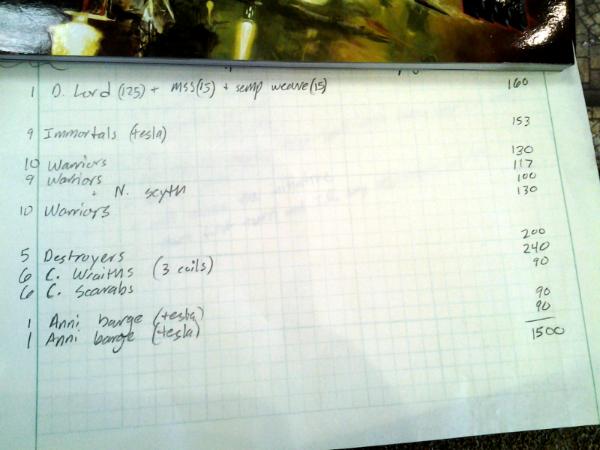 1 D. Lord (125) + MSS(15) + semp weave(15) 160
9 Immortals (tesla) 153
10 Warriors 130
9 Warriors 117
+ N. scyth 100
10 Warriors 130
5 Destroyers 200
6 C. Wraiths (3 coils) 240
6 C. Scarabs 90
1 Anni barge (tesla) 90
1 Anni barge (tesla) 90
1500